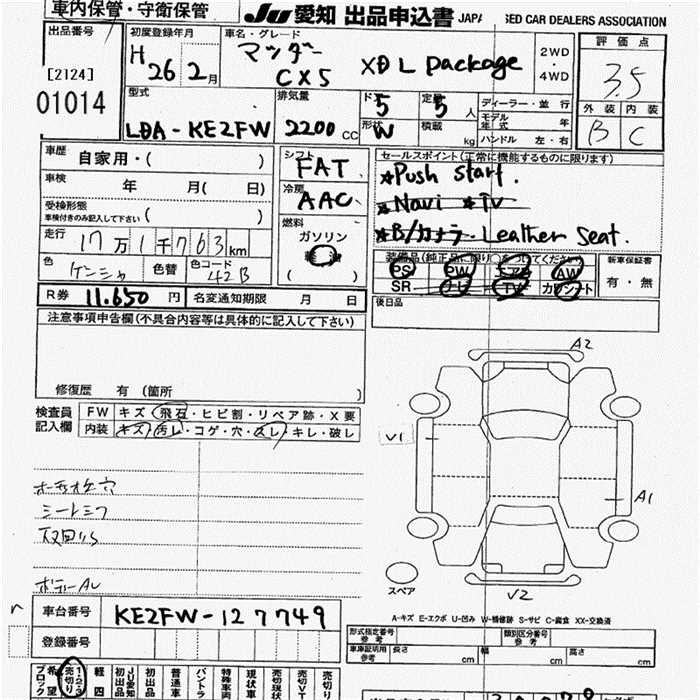 車内保管・守衛保管
JU 愛知 出品申込書 JAPA SED CAR DEALERS ASSOCIATION
出品番号
[2124]
01014
初度登録年月
H 26年 2月
車名・グレード
マツダー
CX5 XD L package
2WD
・
4WD
評価点
3.5
外装 内装
B C
型式
LDA-KE2FW
排気量
2200 CC
ドア
5
定員
5 人
形状
W
積載
kg
ディーラー・並行
モデル年式 年
ハンドル 左・右
車歴 自家用・( )
車検 年 月( 日)
受検形態
車検付きのみ記入して下さい ( )
走行 17万1千763km
色 ゲンシャ 色替 色コード 42B
シフト
FAT
冷房
AAC
燃料
ガソリン
( )
セールスポイント(正常に機能するものに限ります)
★Push start.
★Navi ★TV
★B/カメラ- Leather seat.
装備品(純正品に限り○をつけてください)
PS PW エアB AW
SR ナビ TV カワシート
新車保証書
有・無
後日品
R券 11.650 円 名変通知期限 月 日
注意事項申告欄(不具合内容等は具体的に記入して下さい)
修復歴 有 (箇所 )
検査員
記入欄
FW キズ・飛石・ヒビ割・リペア跡・X要
内装 キズ・汚レ・コゲ・穴・スレ・キレ・破レ
シートシワ
ボディーAL
A2
V1
A1
V2
スペア
A-キズ E-エクボ U-凹み W-補修跡 S-サビ C-腐食 XX-交換済
車台番号 KE2FW-127749
登録番号
型式指定番号
参考
類別区分番号
参考
車庫証明用
参考
長さ cm 幅 cm 高さ cm
希望
ブロック
1・2・3
売切り
軽四
JU愛知
初出品
初出品
普通車
バントラ
特殊車両
現状車
売切現状
売切VT
売切り